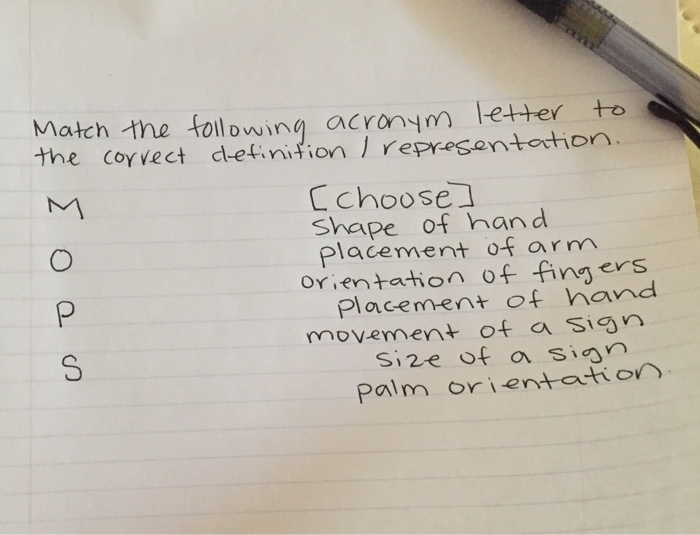 Match the following acronym letter to
the correct definition / representation.
M [choose]
Shape of hand
placement of arm
O
orientation of fingers
P placement of hand
movement of a sign
S size of a sign
palm orientation.